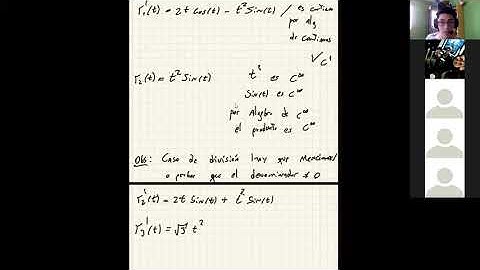 r₁'(t) = 2t cos(t) - t² Sin(t) / es continua
por alg
de continuas
✓ C¹
r₂(t) = t² Sin(t)
t² es C^∞
Sin(t) es C^∞
por Algebra de C^∞
el producto es C^∞
Obs: Caso de división hay que Mencionar
o probar que el denominador ≠ 0
r₂'(t) = 2t Sin(t) + t² Sin(t)
r₃'(t) = √3 t²